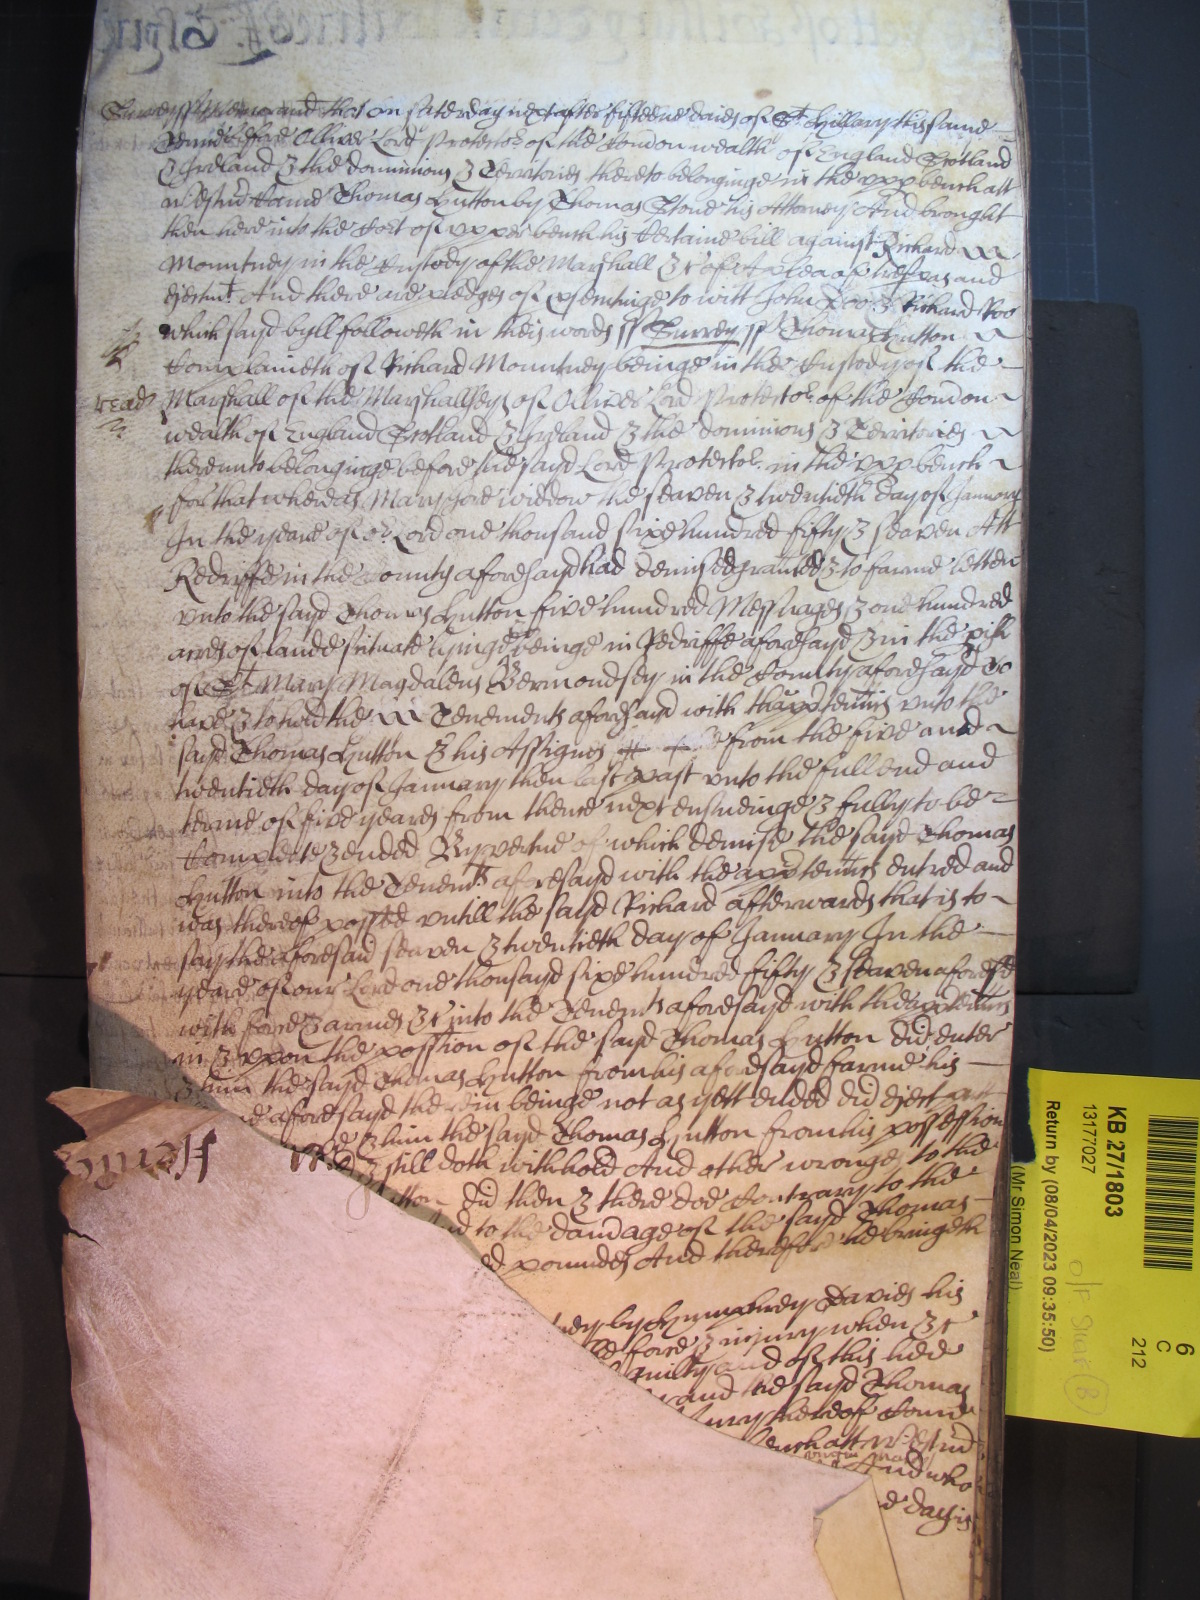 Surrey ss Memorand that on saterday next after fifteene daies of St Hillary this same
Terme before Oliver Lord Protector of the Comon wealth of England Scotland
& Ireland & the dominions & Territories thereto belonginge in the vpp bench att
Westmr Came Thomas Hutton by Thomas Stone his Attorney And brought
then here into the Cort of vpper bench his Certaine bill against Richard
Mountney in the Custody of the Marshall &c of A plea of trespas and
ejectmt And there are pledges of psentinge to witt John Doo & Richard Roo
which sayd byll followeth in theis words ss Surrey ss Thomas Hutton
Complaineth of Richard Mountney beinge in the Custody of the
Marshall of the Marshallsey of Oliver Lord Protector of the Comon
wealth of England Scotland & Ireland & the dominions & Territories
thereunto belonginge before the sayd Lord Protector in the vpp bench
for that whereas Mary Gore widdow the seaven & twentieth day of January
In the yeare of or Lord one thousand sixe hundred fifty & seaven Att
Redriffe in the County aforesayd had demised granted & to farme letten
vnto the sayd Thomas Hutton five hundred Messuages & one hundred
acres of lande scituate lyinge & beinge in Redriffe aforesayd & in the pish
of St Mary Magdalens Bermondsey in the County aforesayd To
have & to hold the Tenements aforesayd with thapptennces vnto the
sayd Thomas Hutton & his Assignes from the five and
twentieth day of January then last past vnto the full end and
terme of five yeares from thence next ensueinge & fully to be
Compleate & ended By vertue of which demise the sayd Thomas
Hutton into the Tenemts aforesayd with the apptennces entred and
was thereof possed vntill the sayd Richard afterwards that is to
say the aforesaid seaven & twentieth day of January In the
yeare of our Lord one thousayd sixe hundred fifty & seaven aforesd
with force & armes &c into the Tenemts aforesayd with the apptennces
in & vpon the possion of the sayd Thomas Hutton did enter
& him the sayd Thomas Hutton from his aforesayd farme his
aforesayd therein beinge not as yett ended did eject
& him the sayd Thomas Hutton from his possession
& still doth withhold And other wronges to the
did then & there doe Contrary to the
And to the damage of the sayd Thomas
pounds And therefore he bringeth
by Humphrey Davies his
force & injury when &c
guilty and of this hee
and the sayd Thomas
Jury thereof Come
bench att Westmr
And who
day is
read
KB 27/1803
13177027
Return by (08/04/2023 09:35:50)
(Mr Simon Neal)
6
C
212
B